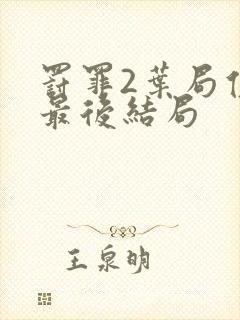 罰罪2葉局
最後結局
王泉明